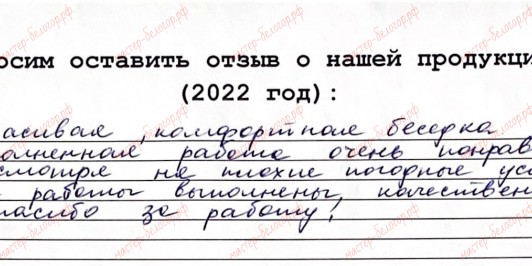 осим оставить отзыв о нашей продукци
(2022 год):
асивая, комфортная беседка
олненная работа очень понрав
смотря на плохие погодные усл
е работы выполнены, качествен
пасибо за работу!